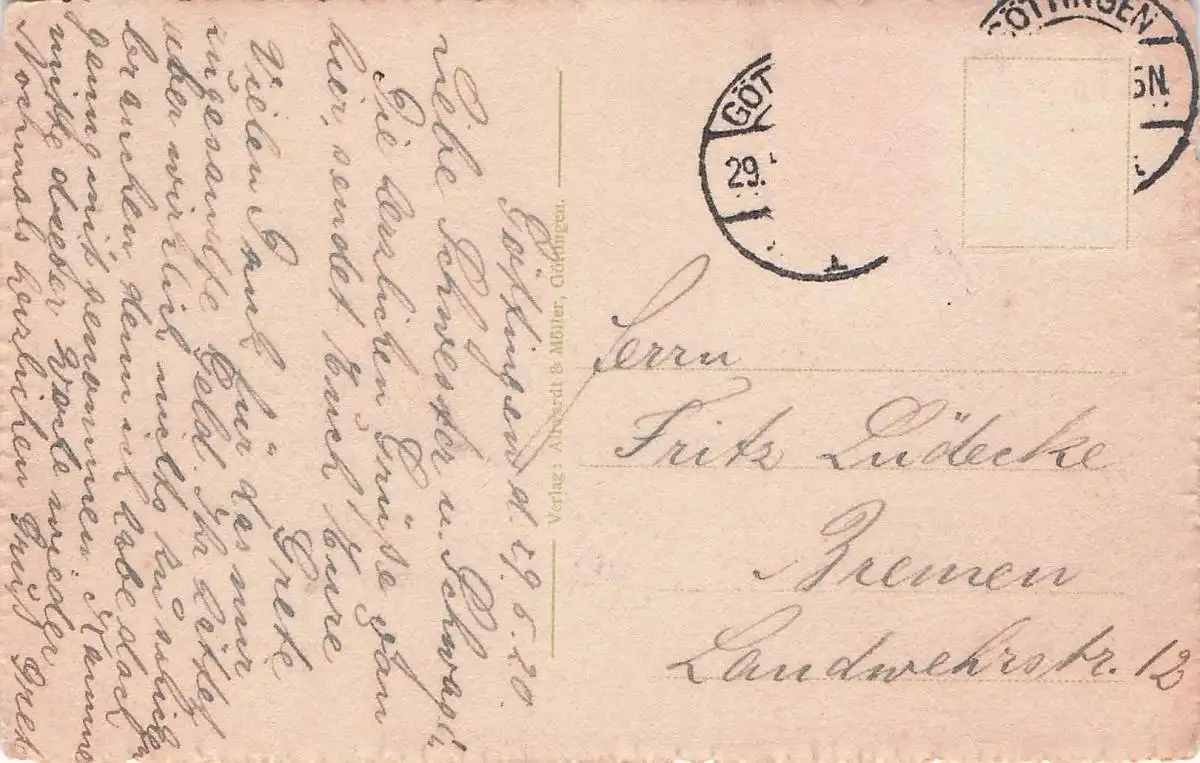 Göttingen d. 29.5.20.
Liebe Schwester u. Schwager,
Die herzlichen Grüße von
hier, sendet Euch Eure
Grete
Vielen Dank für das mir
zugesandte Geld. Ihr hättet
aber wirklich nichts zu schicken
brauchen, denn ich habe doch
genug mitgenommen.
mitte dieser Worte wieder
Nochmals herzlichen Gruß Gret
Verlag: & Möller, Göttingen.
GÖTTINGEN
5N
GÖT
29.
Herrn
Fritz Lüdecke
Bremen
Landwehrstr. 12